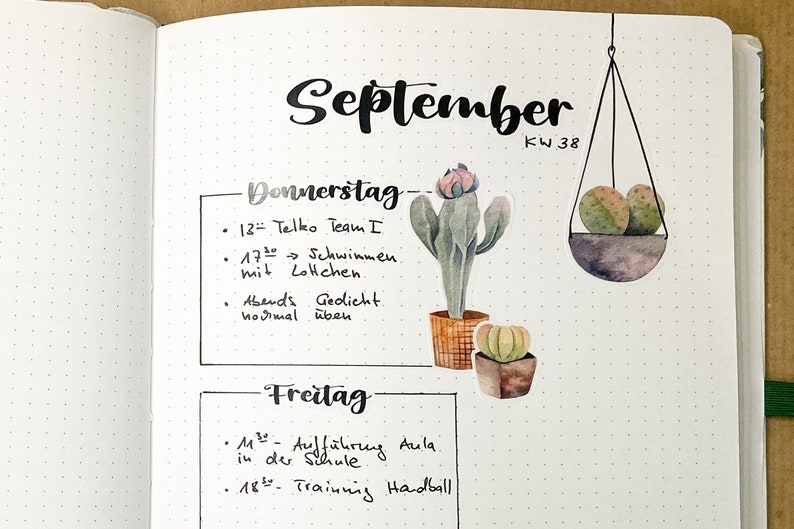 September
KW 38
Donnerstag
• 13⁻⁻ Telko Team I
• 17³⁰ → Schwimmen
mit Lottchen
• Abends Gedicht
normal üben
Freitag
• 11³⁰ - Aufführung Aula
in der Schule
• 18³⁰ - Training Handball